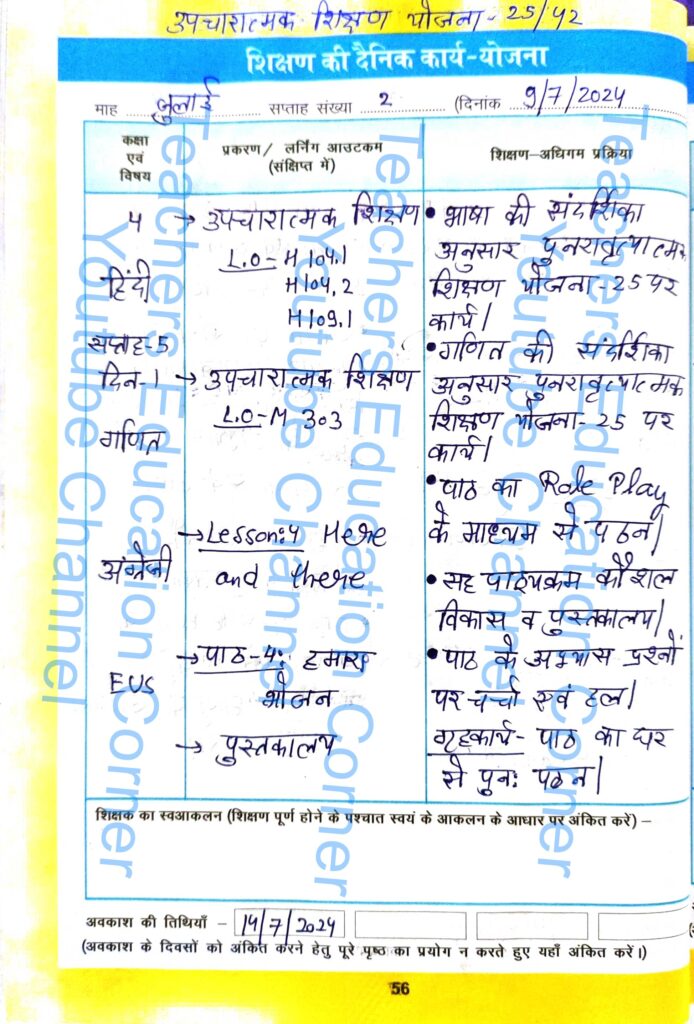 उपचारात्मक शिक्षण योजना - 25/42
शिक्षण की दैनिक कार्य-योजना
माह जुलाई सप्ताह संख्या 2 (दिनांक 9/7/2024
कक्षा
एवं
विषय
प्रकरण/ लर्निंग आउटकम
(संक्षिप्त में)
शिक्षण-अधिगम प्रक्रिया
4
हिंदी
सप्ताह-5
दिन-1
गणित
अंग्रेजी
EVS
→ उपचारात्मक शिक्षण
L.O- H 104.1
H104.2
H109.1
→ उपचारात्मक शिक्षण
L.O-M 303
→ Lesson:4 Here
and there
→ पाठ-4: हमारा
भोजन
→ पुस्तकालय
• भाषा की संदर्शिका
अनुसार पुनरावृत्यात्मक
शिक्षण योजना-25 पर
कार्य|
• गणित की संदर्शिका
अनुसार पुनरावृत्यात्मक
शिक्षण योजना-25 पर
कार्य|
• पाठ का Role Play
के माध्यम से पठन|
• सह पाठ्यक्रम कौशल
विकास व पुस्तकालय|
• पाठ के अभ्यास प्रश्नों
पर चर्चा एवं हल|
गृहकार्य- पाठ का घर
से पुनः पठन|
शिक्षक का स्वआकलन (शिक्षण पूर्ण होने के पश्चात स्वयं के आकलन के आधार पर अंकित करें) –
अवकाश की तिथियाँ – 14/7/2024
(अवकाश के दिवसों को अंकित करने हेतु पूरे पृष्ठ का प्रयोग न करते हुए यहाँ अंकित करें।)
56
Teachers Education Corner
Youtube Channel
Teachers Education Corner
Youtube Channel
Teachers Education Corner
Youtube Channel